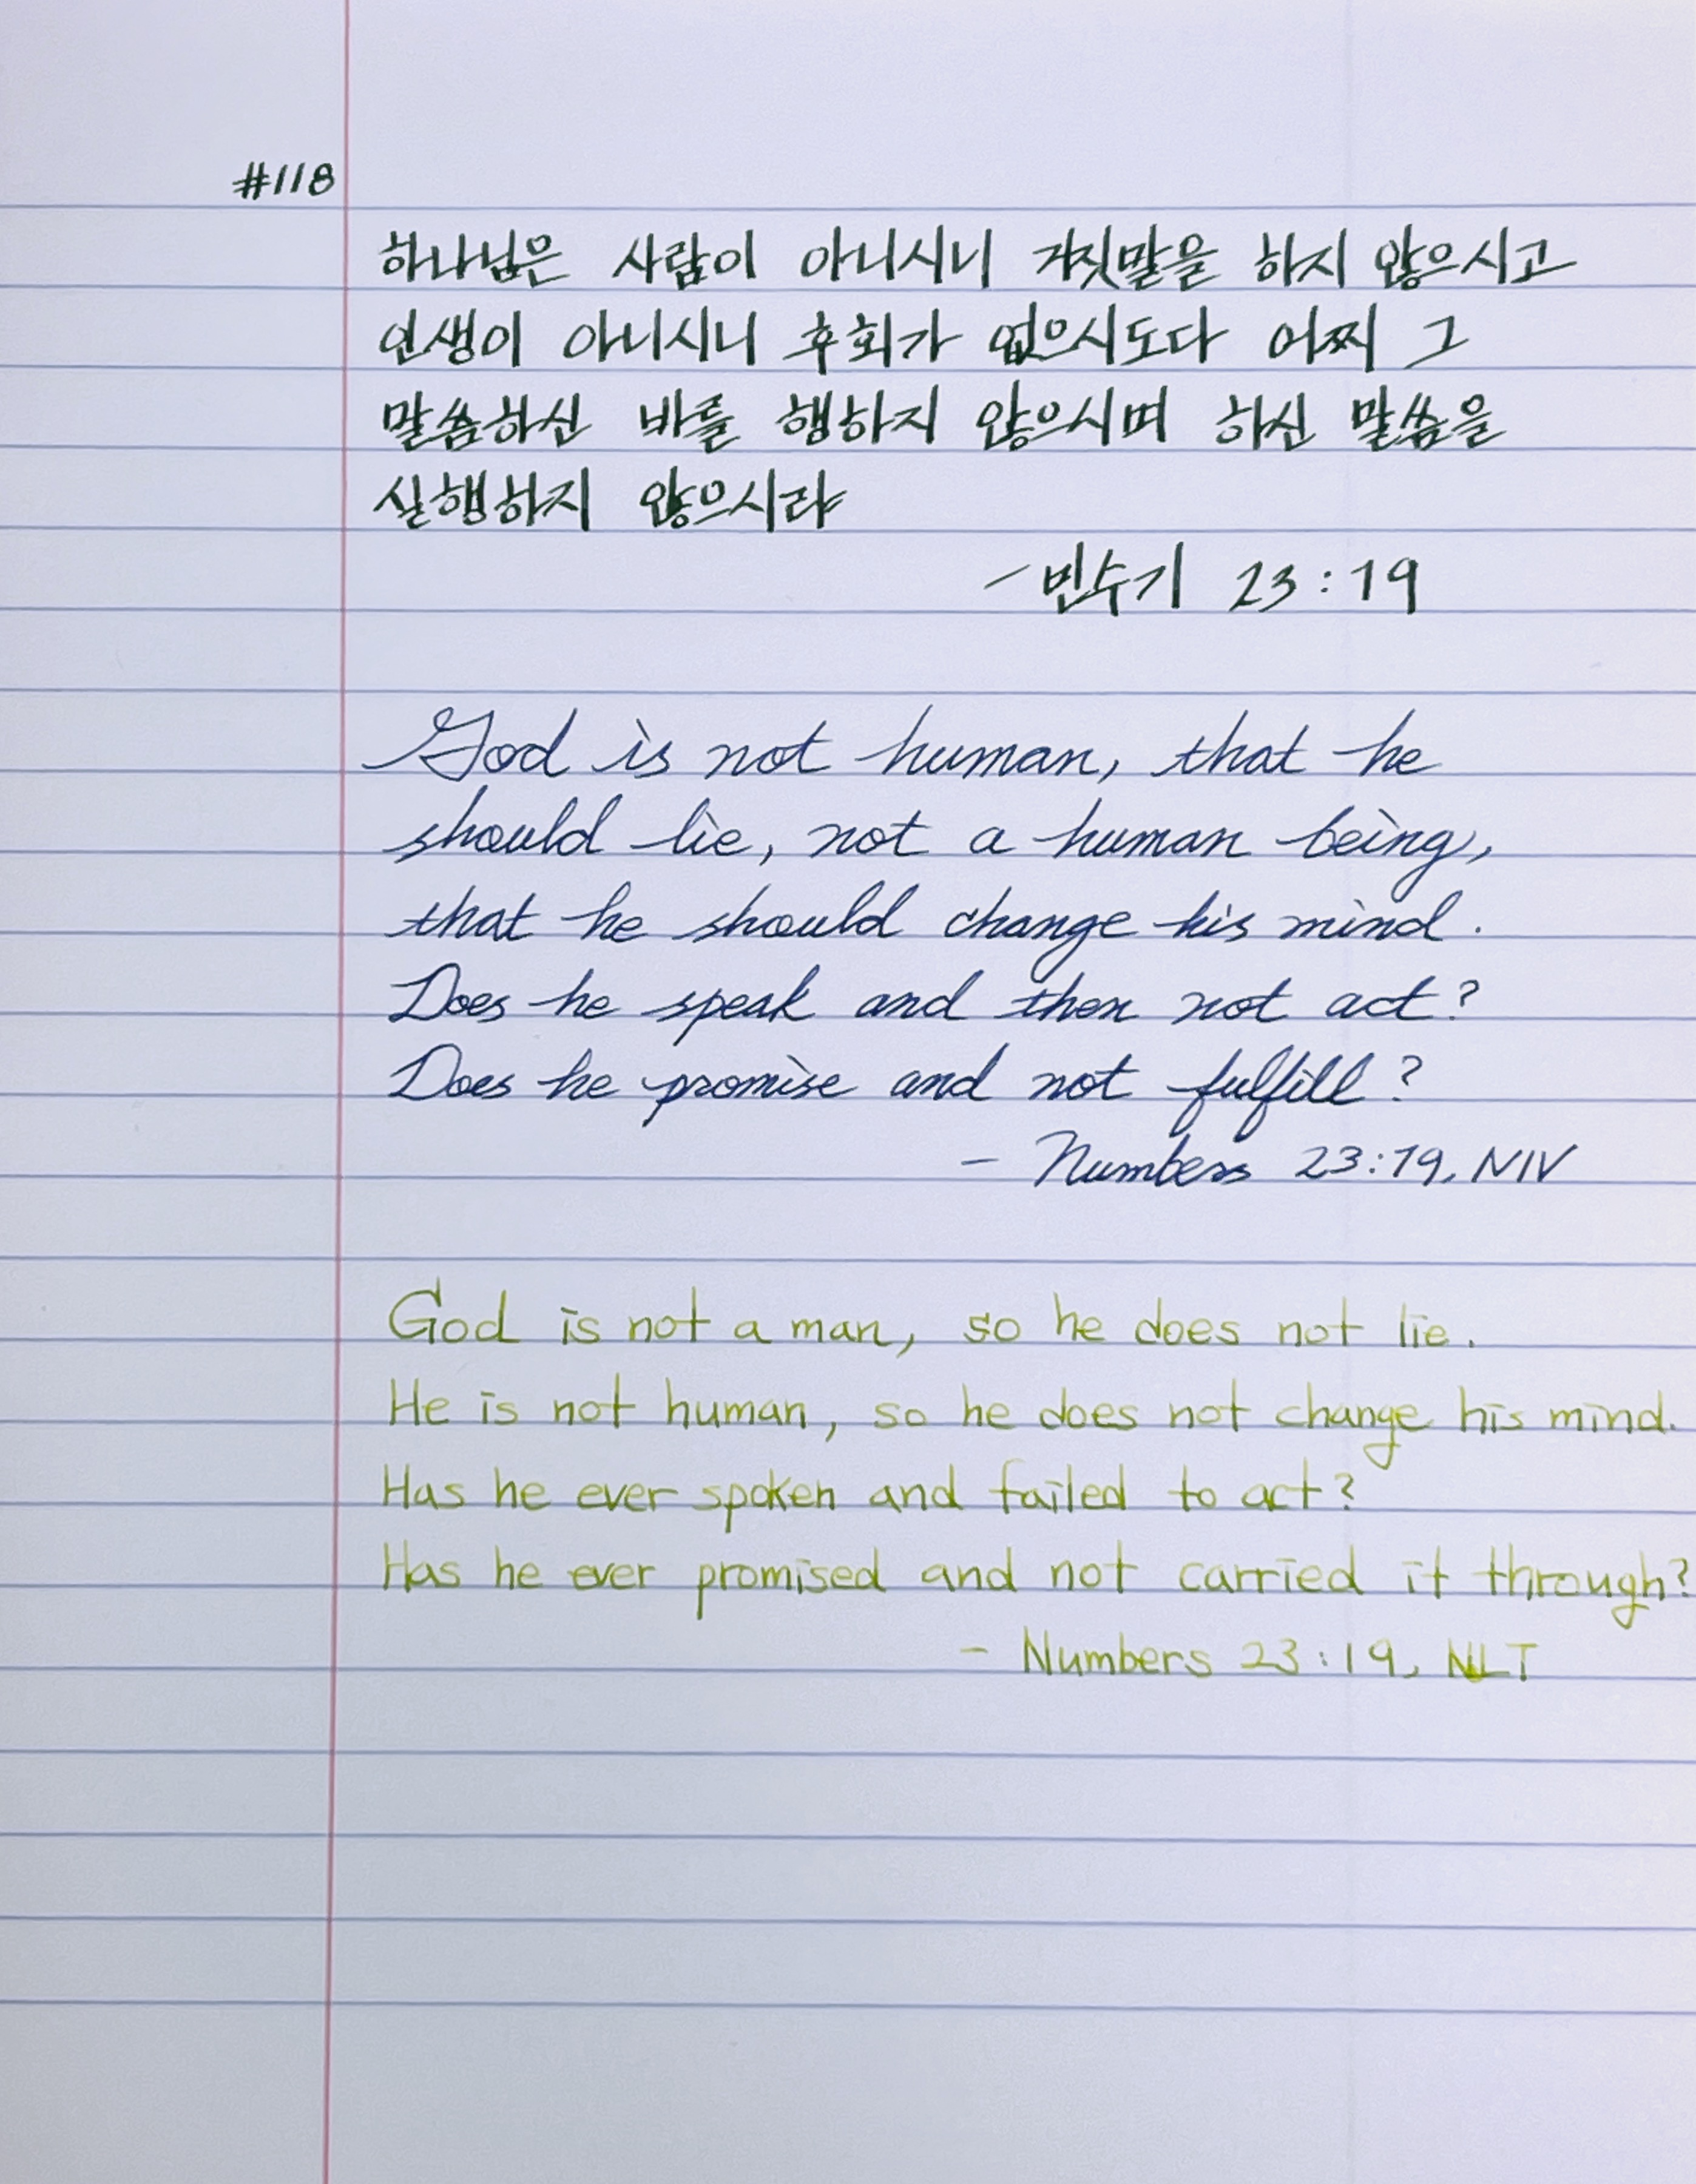 #118
하나님은 사람이 아니시니 거짓말을 하지 않으시고
인생이 아니시니 후회가 없으시도다 어찌 그
말씀하신 바를 행하지 않으시며 하신 말씀을
실행하지 않으시랴
- 민수기 23:19
God is not human, that he
should lie, not a human being,
that he should change his mind.
Does he speak and then not act?
Does he promise and not fulfill?
- Numbers 23:19, NIV
God is not a man, so he does not lie.
He is not human, so he does not change his mind.
Has he ever spoken and failed to act?
Has he ever promised and not carried it through?
- Numbers 23:19, NLT